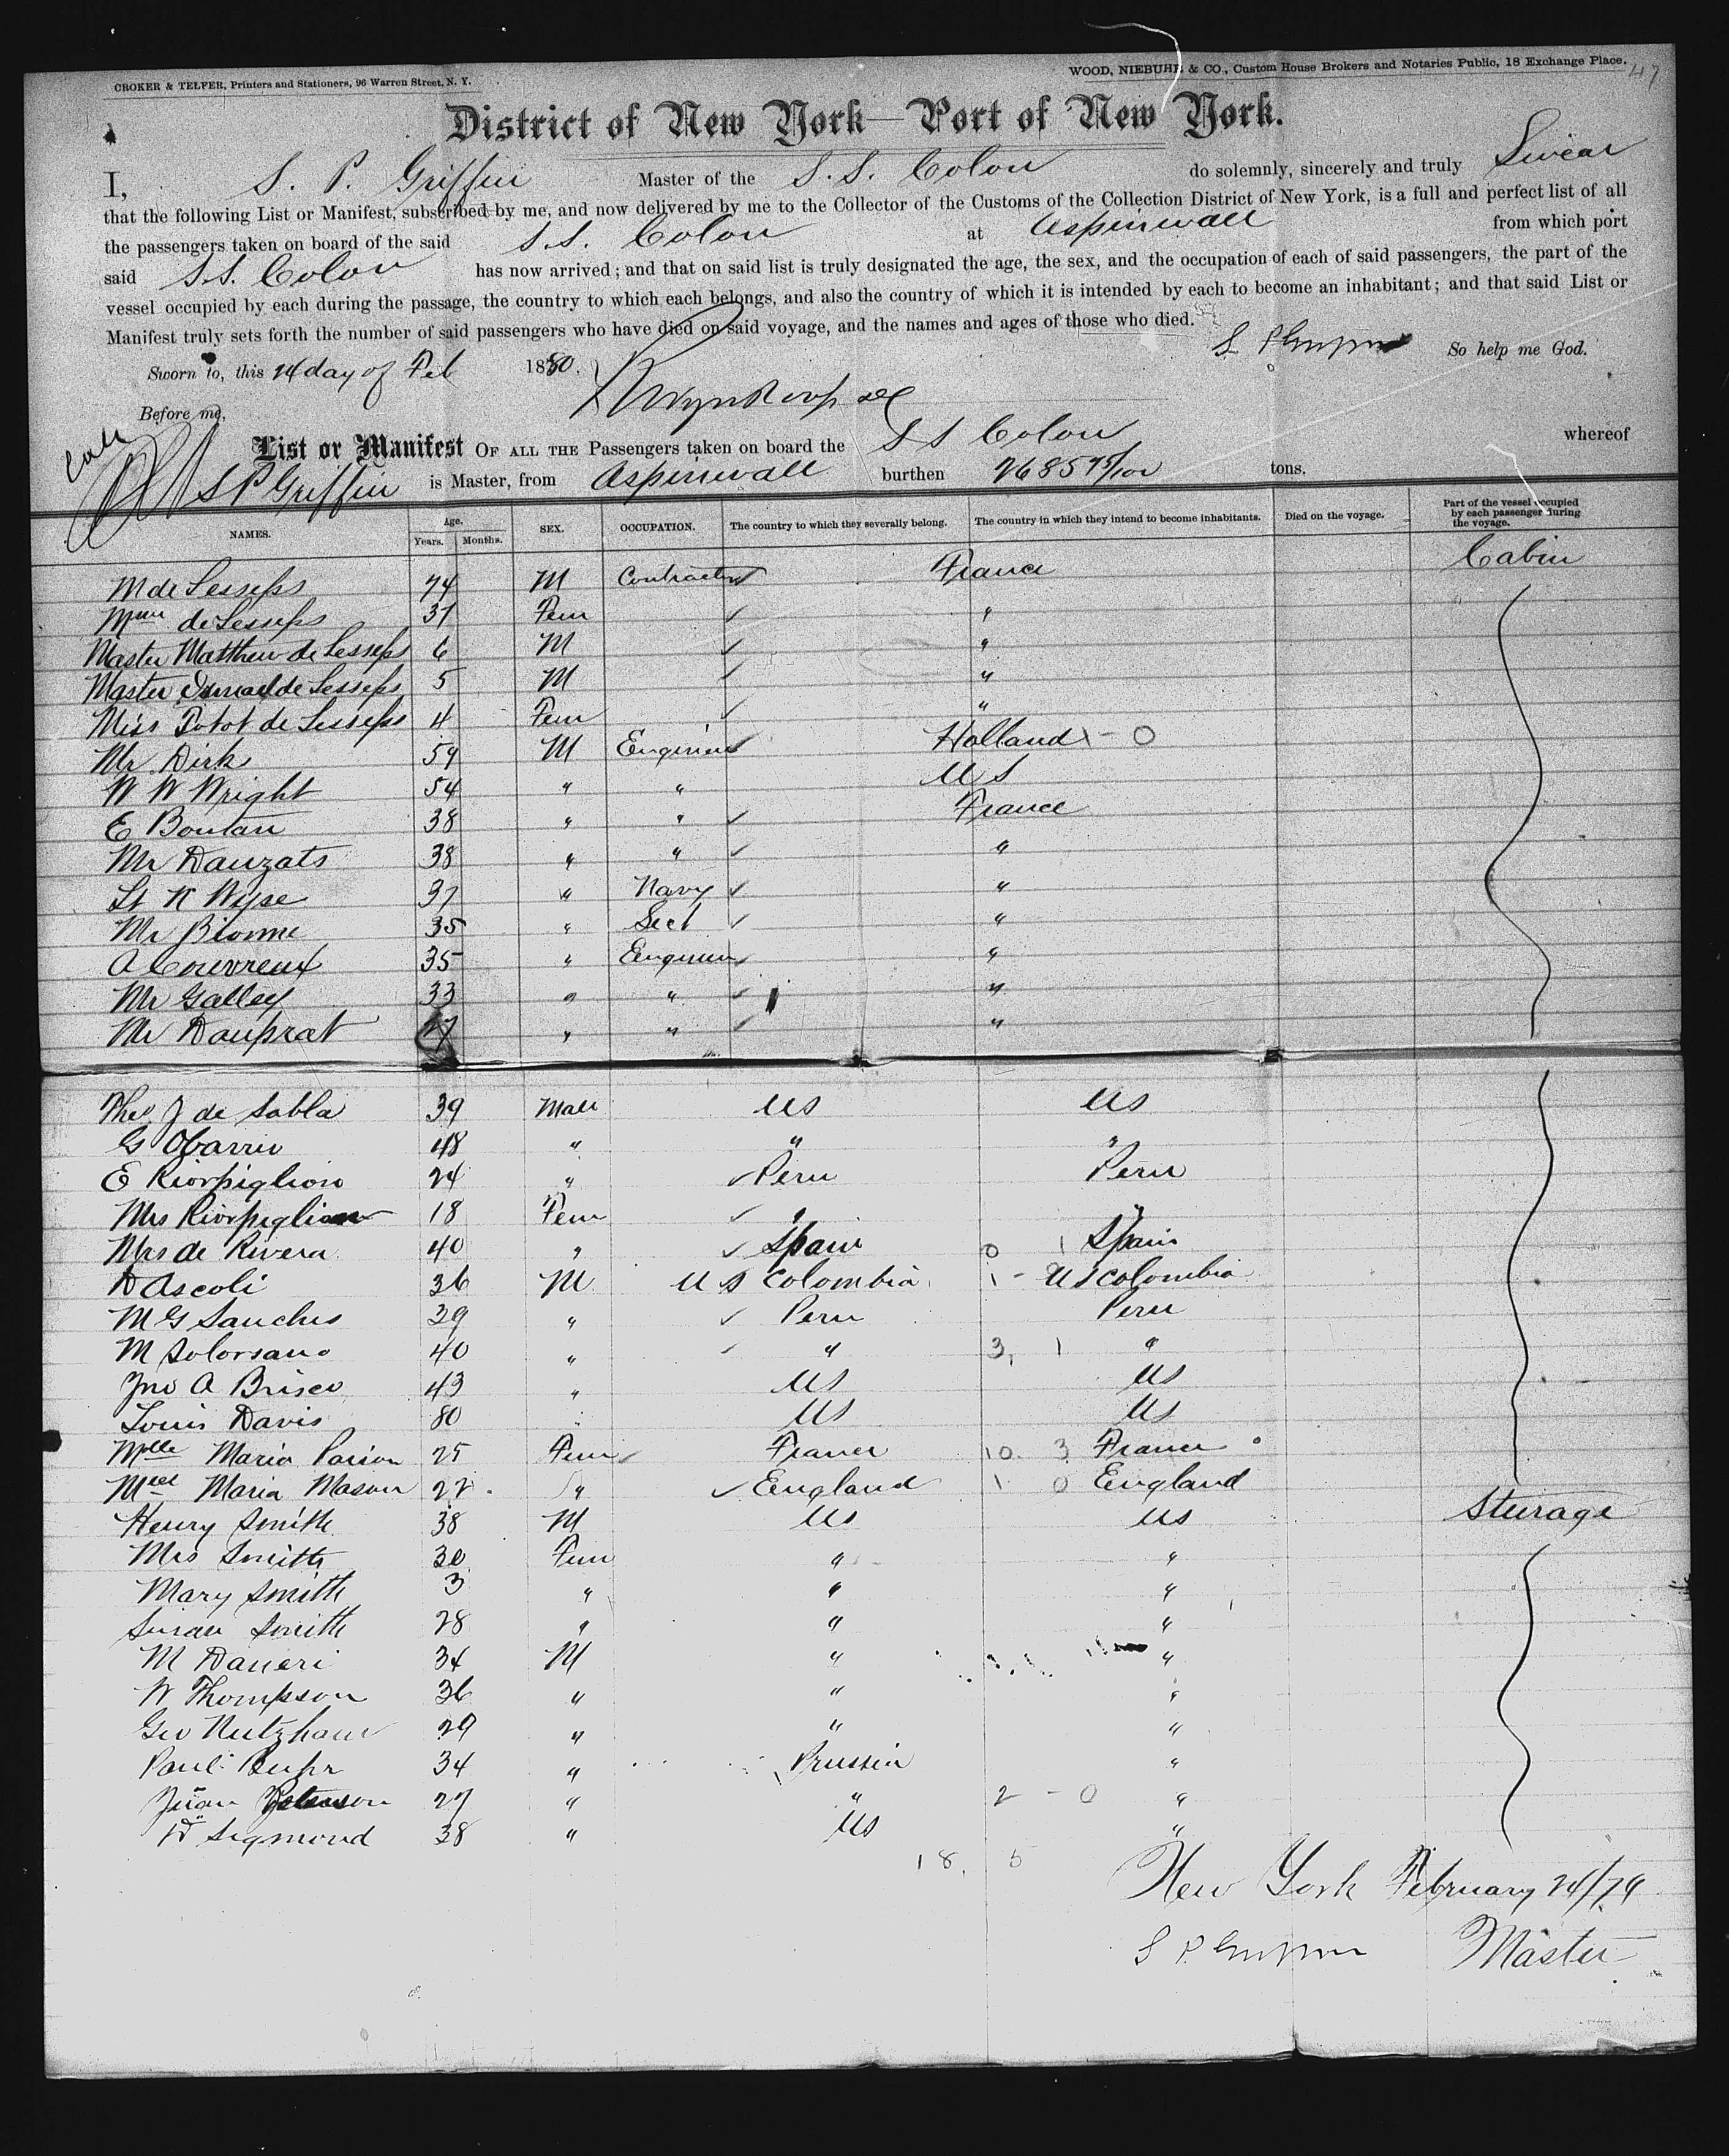 CROKER & TELFER, Printers and Stationers, 96 Warren Street, N. Y.
WOOD, NIEBUHR & CO., Custom House Brokers and Notaries Public, 18 Exchange Place.
47
District of New York—Port of New York.
I, S. P. Griffin Master of the S.S. Colon do solemnly, sincerely and truly Swear
that the following List or Manifest, subscribed by me, and now delivered by me to the Collector of the Customs of the Collection District of New York, is a full and perfect list of all
the passengers taken on board of the said S.S. Colon at Aspinwall from which port
said S.S. Colon has now arrived; and that on said list is truly designated the age, the sex, and the occupation of each of said passengers, the part of the
vessel occupied by each during the passage, the country to which each belongs, and also the country of which it is intended by each to become an inhabitant; and that said List or
Manifest truly sets forth the number of said passengers who have died on said voyage, and the names and ages of those who died.
S P Griffin So help me God.
Sworn to, this 24 day of Feb 1880.
Before me,
List or Manifest OF ALL THE Passengers taken on board the S S Colon whereof
S P Griffin is Master, from Aspinwall burthen 2685 75/100 tons.
NAMES. Age. Years. Months. SEX. OCCUPATION. The country to which they severally belong. The country in which they intend to become inhabitants. Died on the voyage. Part of the vessel occupied by each passenger during the voyage.
M de Lesseps 74 M Contractor France Cabin
Mme de Lesseps 37 Fem "
Master Matthew de Lesseps 6 M "
Master Ismael de Lesseps 5 M "
Miss Totot de Lesseps 4 Fem "
Mr Dirk 59 M Engineer Holland 1 - 0
W W Wright 54 " " U S
E Boutan 38 " " France
Mr Dauzats 38 " " "
Lt N Wyse 37 " Navy "
Mr Bionne 35 " Sect "
A Couvreux 35 " Engineer "
Mr Galley 33 " " "
Mr Dauprat 27 " " "
Theo J de Sabla 39 Male US US
G Obarrio 48 " " "
E Riorpiglioso 24 " Peru Peru
Mrs 18 Fem " "
Mrs de Rivera 40 " Spain 0 1 Spain
D Ascoli 36 M U S Colombia 1 - U S Colombia
M G Sanches 39 " Peru Peru
M Solorsano 40 " " 3, 1 "
Jno A Brisco 43 " US US
Louis Davis 80 " US US
Mlle Maria Parion 25 Fem France 10. 3 France
Mlle Maria Mason 22 " England 1 0 England
Henry Smith 38 M US US Steerage
Mrs Smith 30 Fem " "
Mary Smith 3 " " "
Susan Smith 28 " " "
M Daneri 34 M " "
W Thompson 36 " " "
Geo Nutzham 29 " " "
Paul 34 " Prussia "
Juan Peterson 27 " " 2 - 0 "
D Sigmond 38 " US "
18. 5
New York February 24/79
S P Griffin Master